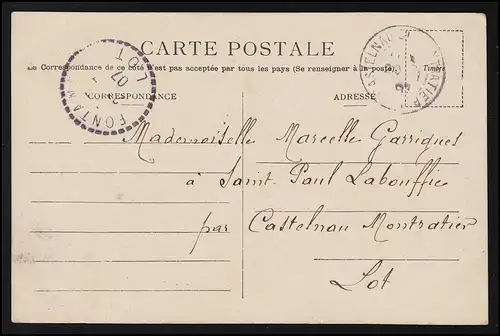 CARTE POSTALE
La Correspondance de ce côté n'est pas acceptée par tous les pays (Se renseigner à la poste).
Timbre
CORRESPONDANCE
ADRESSE
LOT
07
Mademoiselle Marcelle Garrigues
à Saint-Paul Labouffie
par Castelnau Montratier
Lot